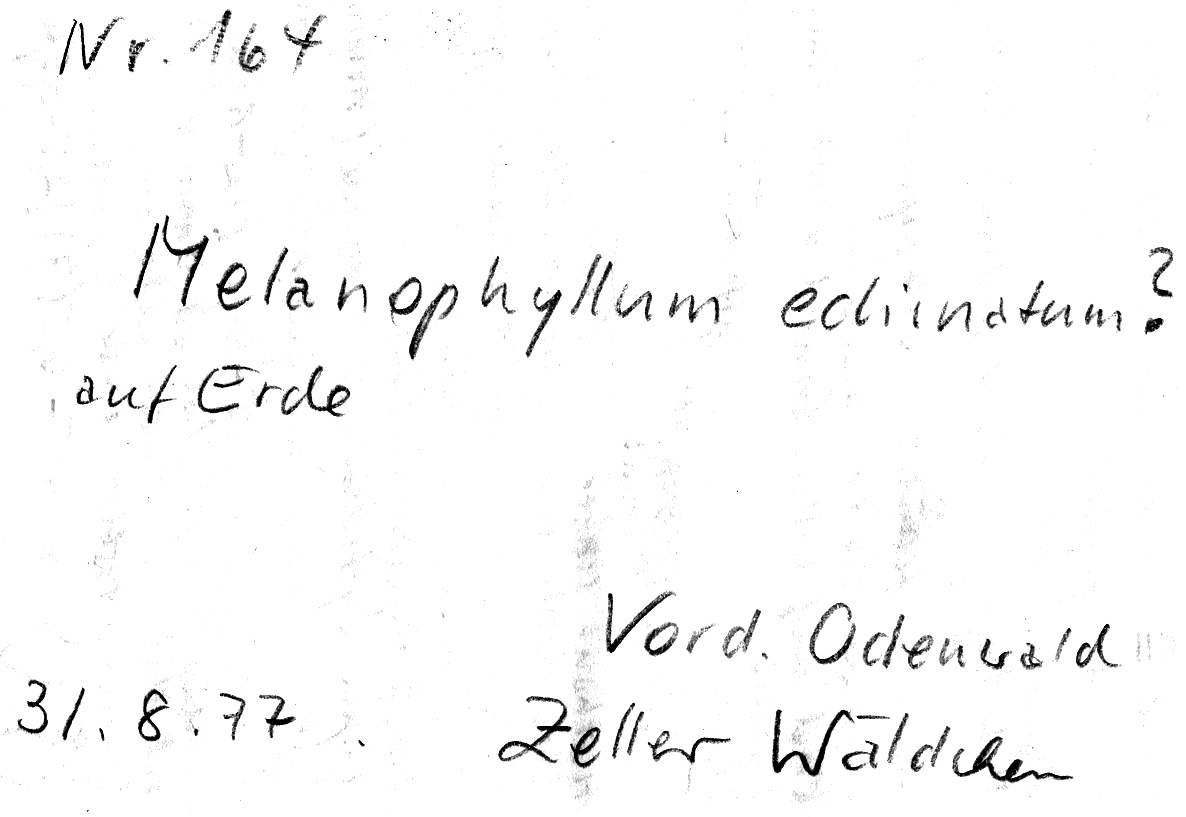 Nr. 164
Melanophyllum echinatum?
auf Erde
Vord. Odenwald
31.8.77. Zeller Wäldchen